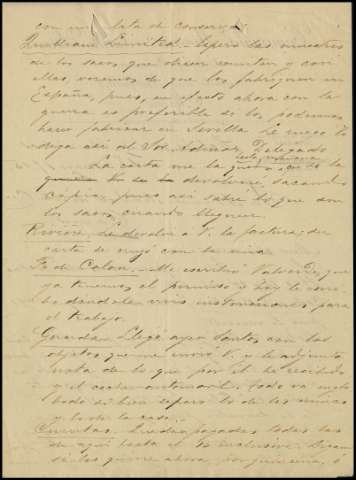 con una lata de conserva.
Quebrain Limited - Espero las muestras
de los sacos que dicen remiten y con
ellas veremos de que los fabriquen en
España, pues, en efecto ahora con la
guerra es preferible si los podemos
hacer fabricar en Sevilla. Le ruego lo
diga así al Sor. Adminor. Delegado
La carta me la
devolvere, sacando
copia, pues asi sabre lo que son
los sacos, cuando lleguen.
Riviere. Le devolví a V. la factura; su
carta se cruzó con la mia.
Po de Colon. - Me escribió Valverde, que
ya tenemos el permiso y hoy le
dandole mis instrucciones para
el trabajo.
Guardas. Llegó ayer Santos con los
objetos que me envió V. y le adjunto
nota de lo que por él he recibido
y el coche automovil. Todo va
todo si bien espero lo de los
y lo de la casa.
Cuentas. Quedan pagadas todas las
de aquí hasta el 15 inclusive.
las que ahora, ó